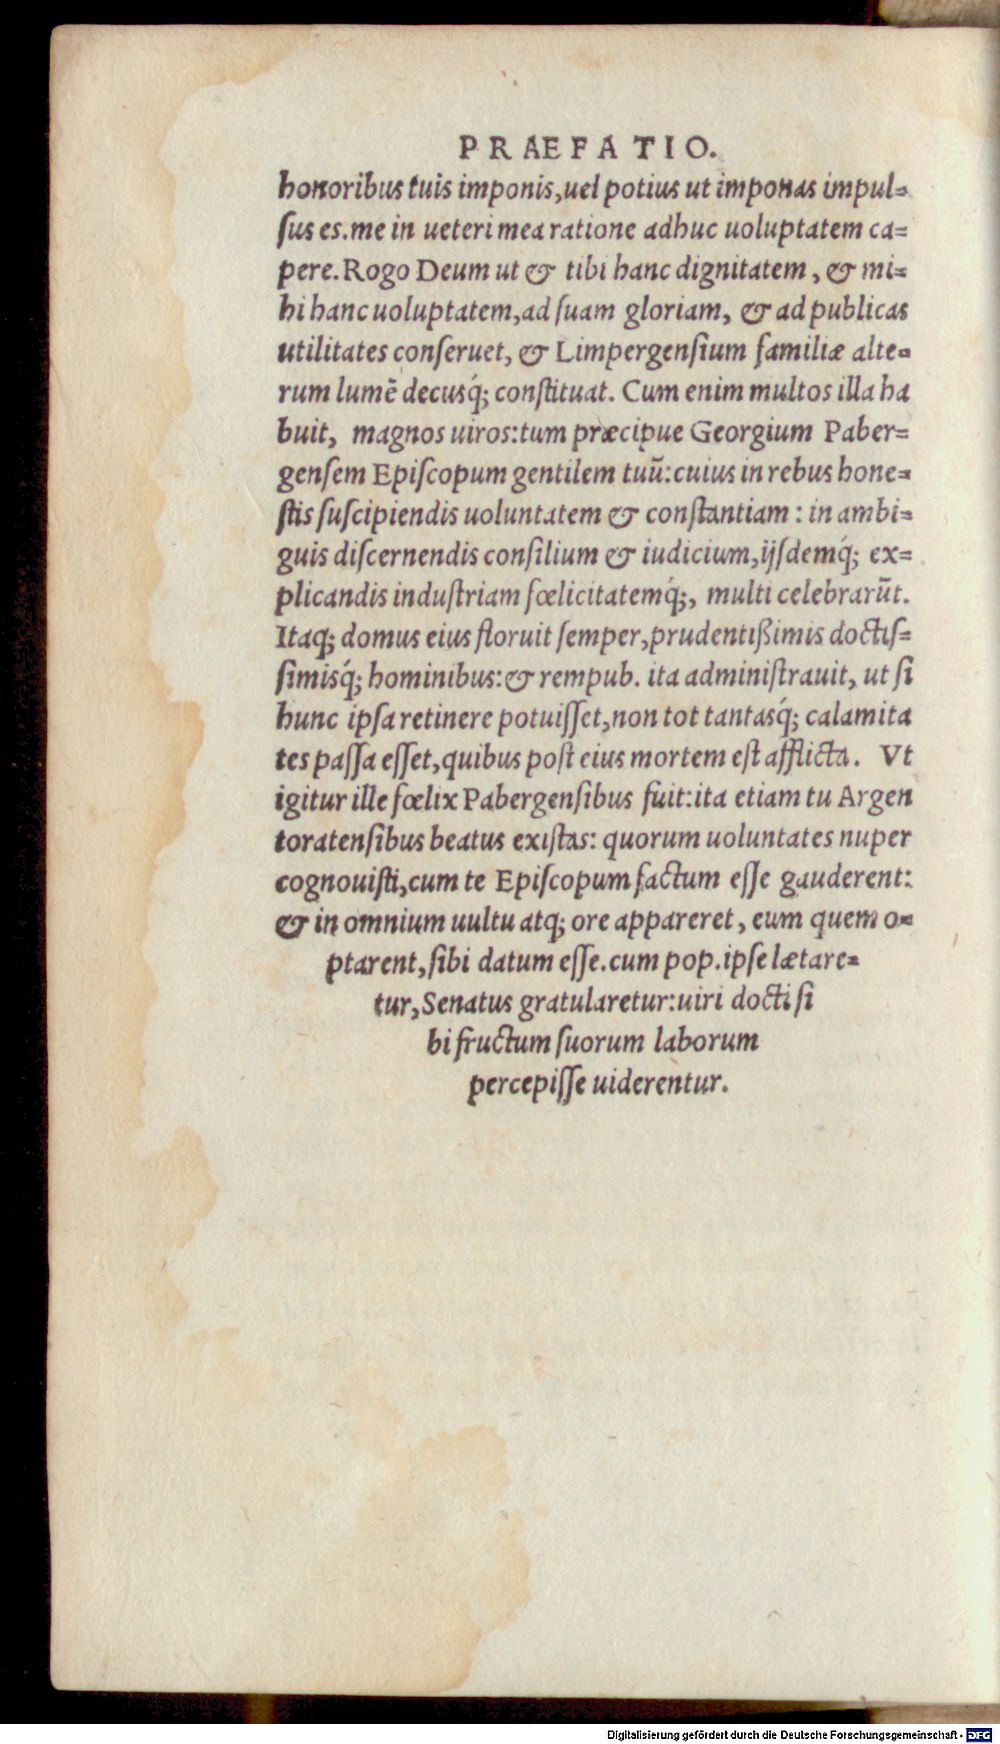 PRAEFATIO.
honoribus tuis imponis,uel potius ut imponas impul=
ſus es.me in ueteri mea ratione adhuc uoluptatem ca=
pere.Rogo Deum ut & tibi hanc dignitatem, & mi=
hi hanc uoluptatem,ad ſuam gloriam, & ad publicas
utilitates conſeruet, & Limpergenſium familiæ alte=
rum lumē decusq́; conſtituat. Cum enim multos illa ha
buit, magnos uiros:tum præcipue Georgium Paber=
genſem Epiſcopum gentilem tuū:cuius in rebus hone=
ſtis ſuſcipiendis uoluntatem & conſtantiam: in ambi=
guis diſcernendis conſilium & iudicium,ijſdemq́; ex=
plicandis induſtriam fœlicitatemq́;, multi celebrarūt.
Itaq; domus eius floruit ſemper,prudentißimis doctiſ=
ſimisq́; hominibus:& rempub. ita adminiſtrauit, ut ſi
hunc ipſa retinere potuiſſet,non tot tantasq́; calamita
tes paſſa eſſet,quibus poſt eius mortem eſt afflicta. Vt
igitur ille fœlix Pabergenſibus fuit:ita etiam tu Argen
toratenſibus beatus exiſtas: quorum uoluntates nuper
cognouiſti,cum te Epiſcopum factum eſſe gauderent:
& in omnium uultu atq; ore appareret, eum quem o=
ptarent,ſibi datum eſſe.cum pop.ipſe lætare=
tur,Senatus gratularetur:uiri docti ſi
bi fructum ſuorum laborum
percepiſſe uiderentur.
Digitalisierung gefördert durch die Deutsche Forschungsgemeinschaft - DFG